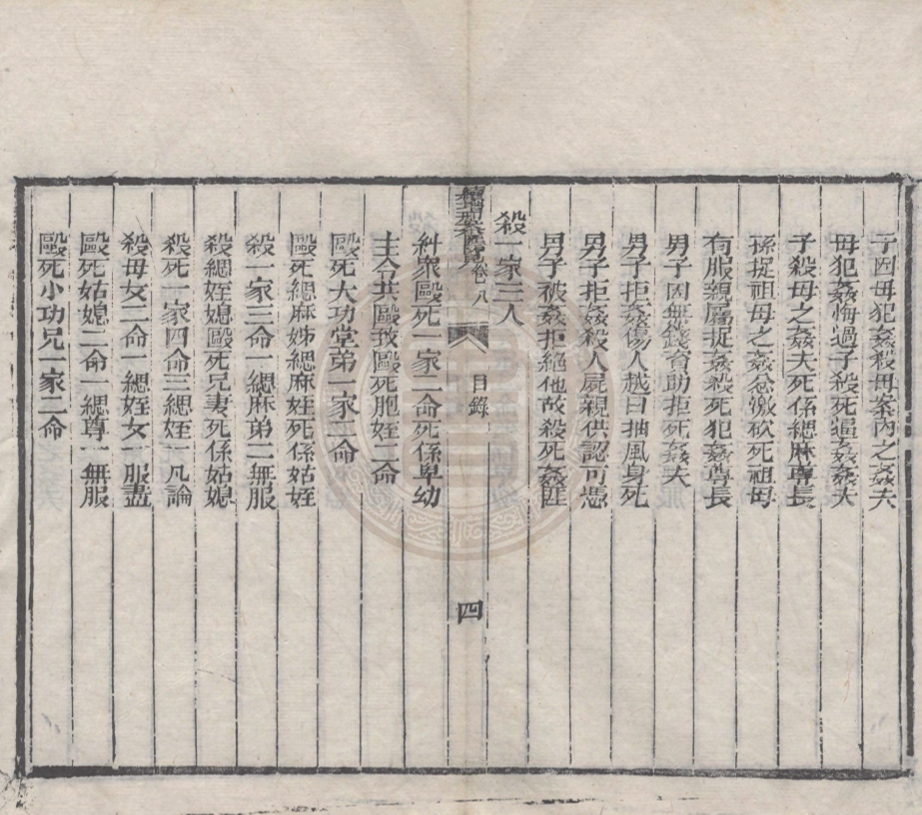 子因母犯姦殺母案內之姦夫
母犯姦悔過子殺死逼姦姦夫
子殺母之姦夫死係緦麻尊長
孫捉祖母之姦忿激砍死祖母
有服親屬捉姦殺死犯姦尊長
男子因無錢資助拒死姦夫
男子拒姦傷人越日抽風身死
男子拒姦殺人屍親供認可憑
男子被姦拒絕他故殺死姦匪
卷八
目錄
四
殺一家三人
糾衆毆死一家二命死係卑幼
主令共毆致毆死胞姪二命
毆死大功堂弟一家二命
毆死緦麻姊緦麻姪死係姑姪
殺一家三命一緦麻弟二無服
殺緦姪媳毆死兄妻死係姑媳
殺死一家四命三緦姪一凡論
殺母女二命一緦姪女一服盡
毆死姑媳二命一緦尊一無服
毆死小功兄一家二命